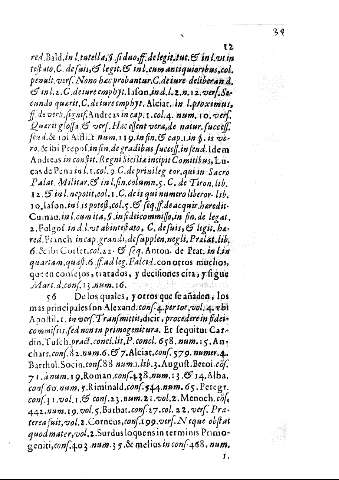 39
12
red. Bald. in l. tutella, §. si duo, ff. de legit. tut. & in l. vt in
testato, C. de suis, & legit. & in l. cum antiquioribus, col.
penult. vers. Nono hac probantur, C. de iure deliberand.
& in l. 2. C. de iure emphyt. Iason, ind. l. 2. n. 12. vers. Se-
cundo quærit, C. de iure emphyt. Alciat. in l. proximus,
ff. de verb. signif. Andreas in cap. 1. col. 4. num. 10. vers.
Quærit glossa & vers. Hac essent vera, de natur. success.
feud. & ioi Aflict. num. 19. in fin. & cap. 1. in §. is ve-
ro, & ibi Preposi. in fin. de gradibus success. in feud. Idem
Andreas in constit. Regni Siciliæ incipit Comitibus, Lu-
cas de Pena in l. 1. col. 9. C. de privileg. eor. qui in Sacro
Palat. Militar. & in l. fin. column. 5. C. de Tiron. lib.
12. & in l. nepotit, col. 1. C. de is qui numero liberor. lib.
10. Iason. in l. is potest, col. 5. & seq. ff. de acquir. heredit.
Cuman. in l. cum ita, §. in fideicommisso, in fin. de legat.
2. Fulgos. in d. l. vt ab intestato, C. de suis, & legit. hæ-
red. Franch. in cap. grandi, de supplen. neglig. Prælat. lib.
6. & ibi Corset. col. 22. & seq. Anton. de Prat. in l. in
quartam, quæst. 6. ff. ad leg. Falcid. con otros muchos,
que en consejos, tratados, y decisiones cita, y sigue
Mart. d. cons. 13. num. 16.
56 De los quales, y otros que se añaden, los
mas principales son Alexand. cons. 4. per tot. vol. 4. vbi
Apostil. t. in vers. Transmittis, dicit, procedere in fidei-
commissis, sed non in primogenitura. Et sequitur Car-
din. Tusch. pract. concl. lit. P. concl. 658. num. 15. An-
char. cons. 82. num. 6. & 7. Alciat. cons. 579. numer. 4.
Barthol. Socin. cons. 88. num. 1. lib. 3. August. Beroi. cons.
71. à num. 19. Roman. cons. 438. num. 13. & 14. Alba,
cons. 60. num. 7. Riminald. cons. 544. num. 65. Peregr.
cons. 31. vol. 1. & cons. 23. num. 21. vol. 2. Menoch. cons.
442. num. 19. vol. 5. Barbat. cons. 27. col. 22. vers. Præ-
terea suis, vol. 2. Corneus, cons. 199. vers. Neque obstat
quod mater, vol. 2. Surdus loquens in terminis Primo-
geniti, cons. 403. num. 35. & melius in cons. 468. num.
1.